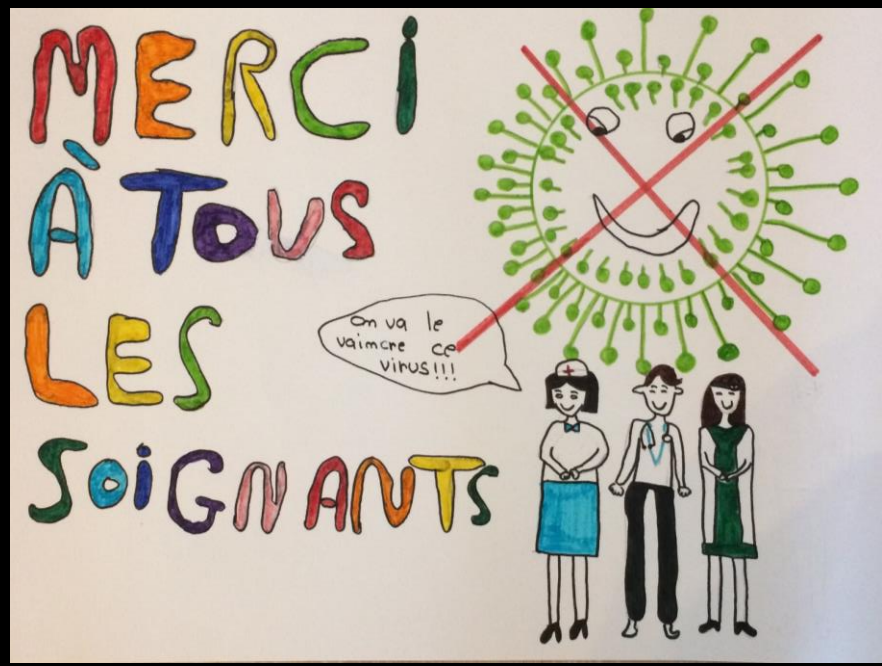 MERCI
À TOUS
LES
SOIGNANTS
On va le
vaimcre ce
virus!!!